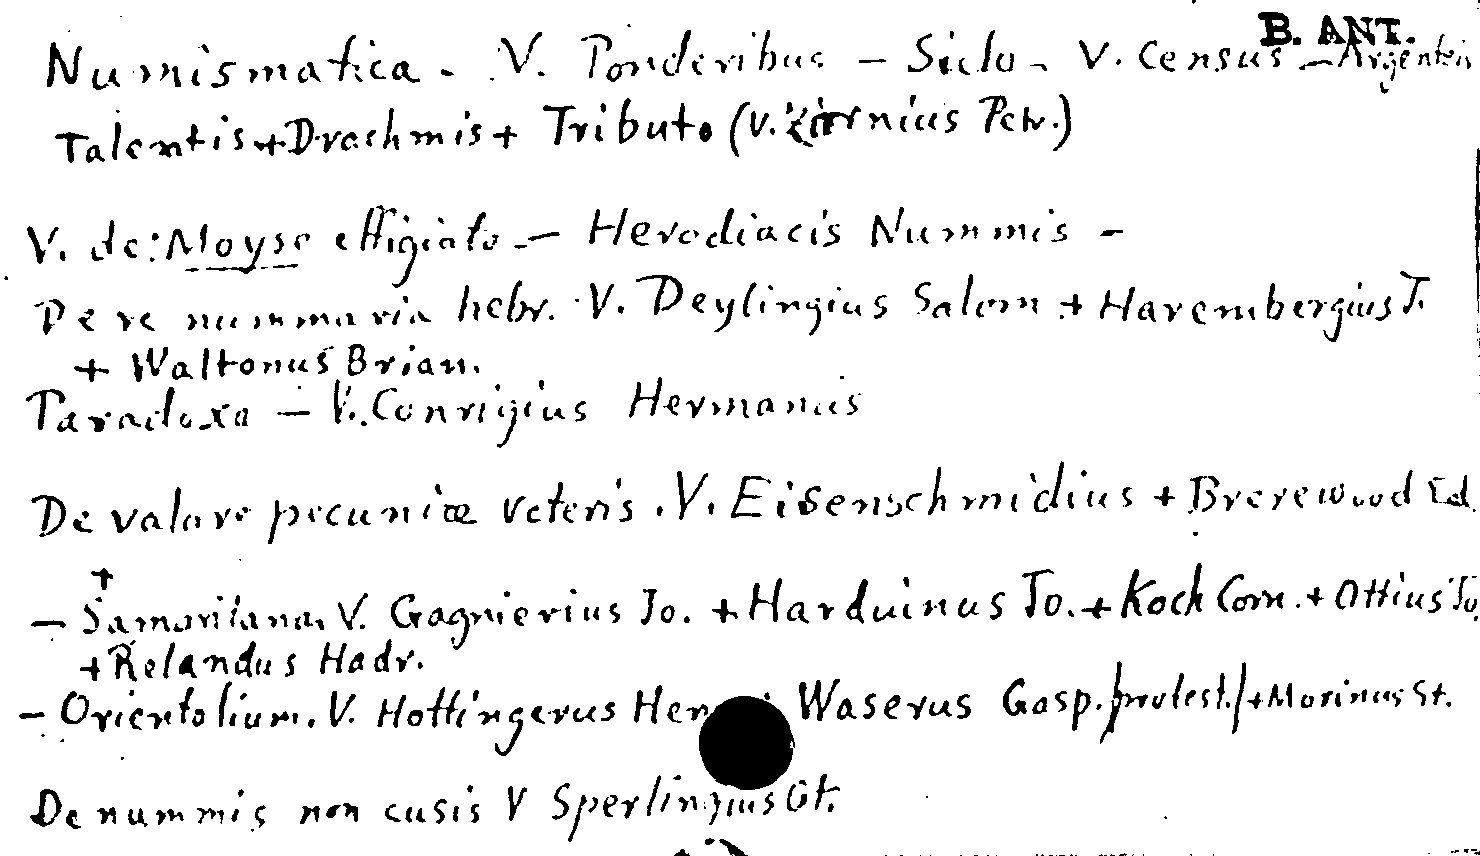 B. ANT.
Numismatica - V. Ponderibus - Siclo - V. Census - Argenteis
Talentis + Drachmis + Tributo (V. Zornius Petr.)
V. de: Moyse effigiato - Herodiacis Nummis -
De re nummaria hebr. V. Deylingius Salom + Harembergius J.
+ Waltonus Brian.
Paradoxa - V. Conrigius Hermanus
De valore pecuniæ veteris. V. Eisenschmidius + Brerewood Ed.
+
- Samaritana. V. Gagnierius Jo. + Harduinus Jo. + Koch Corn. + Ottius Jo.
+ Relandus Hadr.
- Orientalium. V. Hottingerus Waserus Gasp. /protest./ + Morinus St.
De nummis non cusis V Sperlingius Ot.